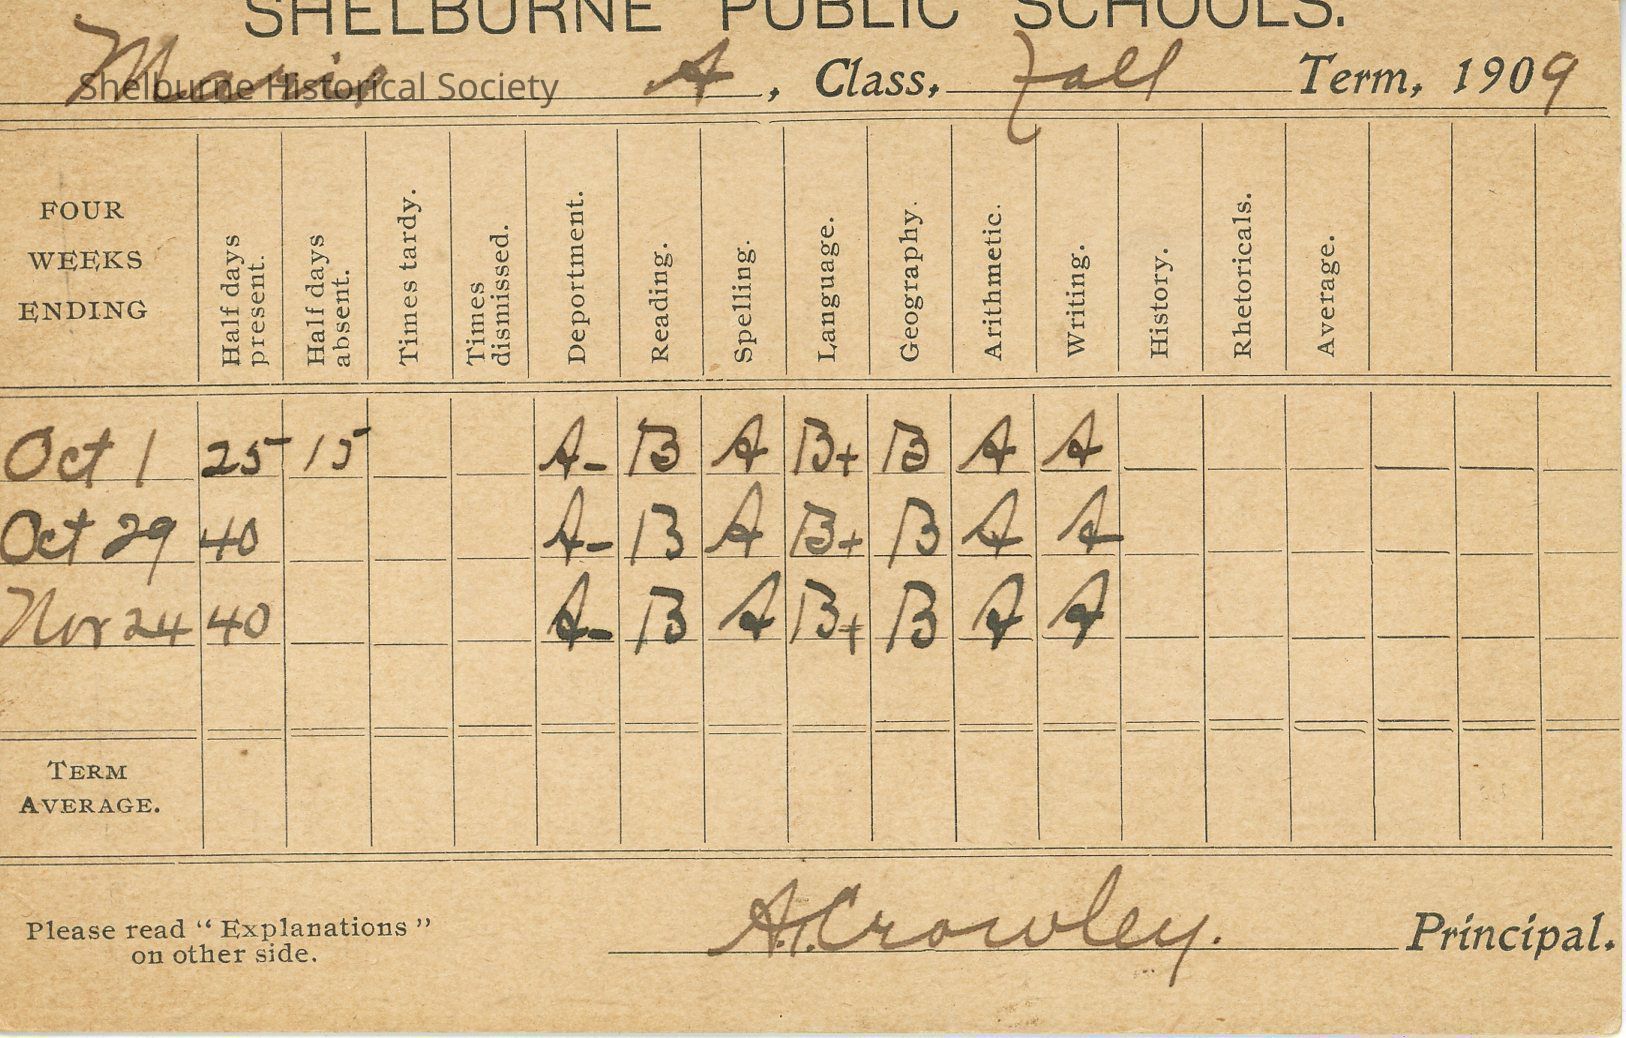 SHELBURNE PUBLIC SCHOOLS.
Marie A, Class, Fall Term, 1909
Shelburne Historical Society
FOUR WEEKS ENDING Half days present. Half days absent. Times tardy. Times dismissed. Deportment. Reading. Spelling. Language. Geography. Arithmetic. Writing. History. Rhetoricals. Average.
Oct 1 25 15 A- B A B+ B A A
Oct 29 40 A- B A B+ B A A
Nov 24 40 A- B A B+ B A A
TERM
AVERAGE.
Please read "Explanations"
on other side.
Crowley. Principal.